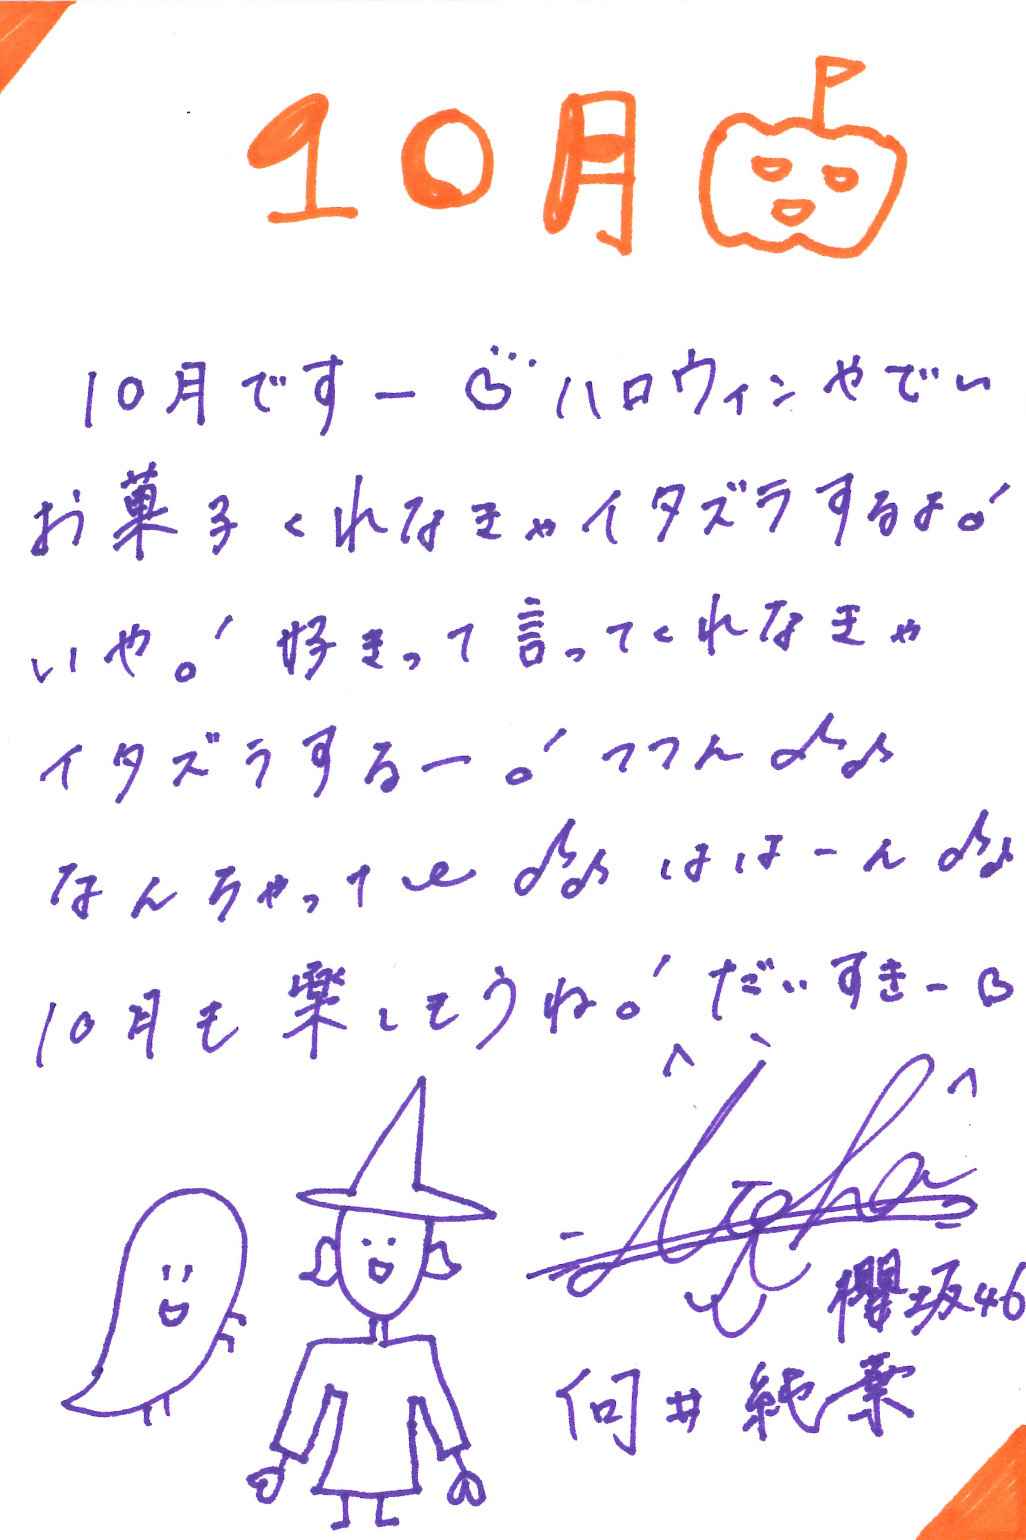 10月
10月ですー♡ハロウィンやでい
お菓子くれなきゃイタズラするよ！
いや！好きって言ってくれなきゃ
イタズラするー！ててん♪♪
なんちゃって ♪♪ほほーん♪♪
10月も楽しもうね！だいすきー♡
櫻坂46
向井純葉